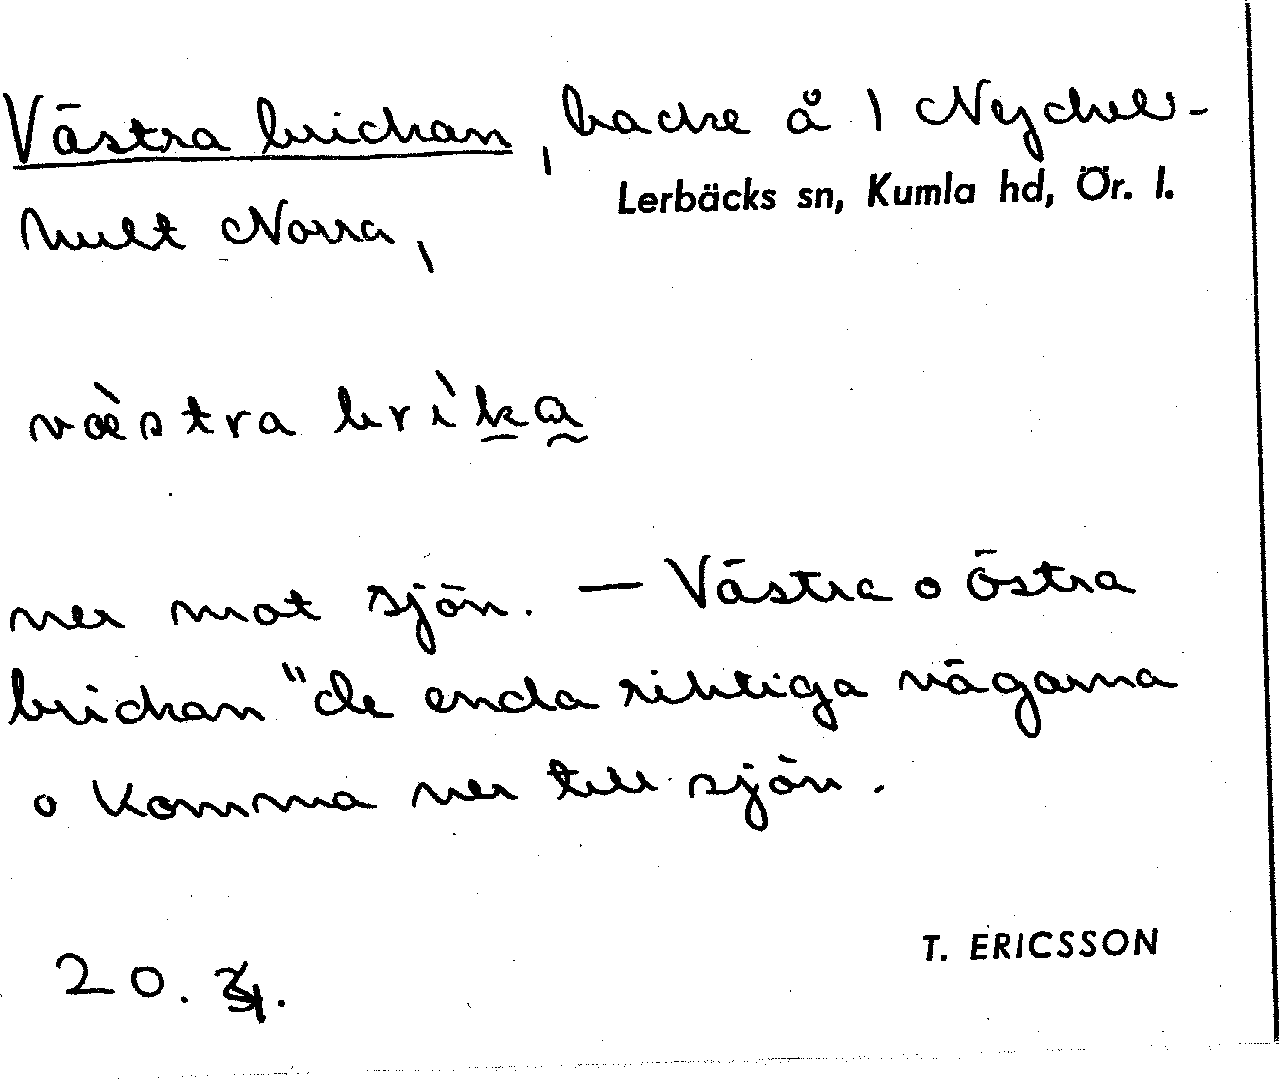 Västra brickan, backe å 1 Nyckel-
Lerbäcks sn, Kumla hd, Ör. l.
hult Norra,
væ̀stra brìka
ner mot sjön. — Västra o Östra
brickan "de enda riktiga vägarna
o komma ner till sjön.
T. ERICSSON
20.